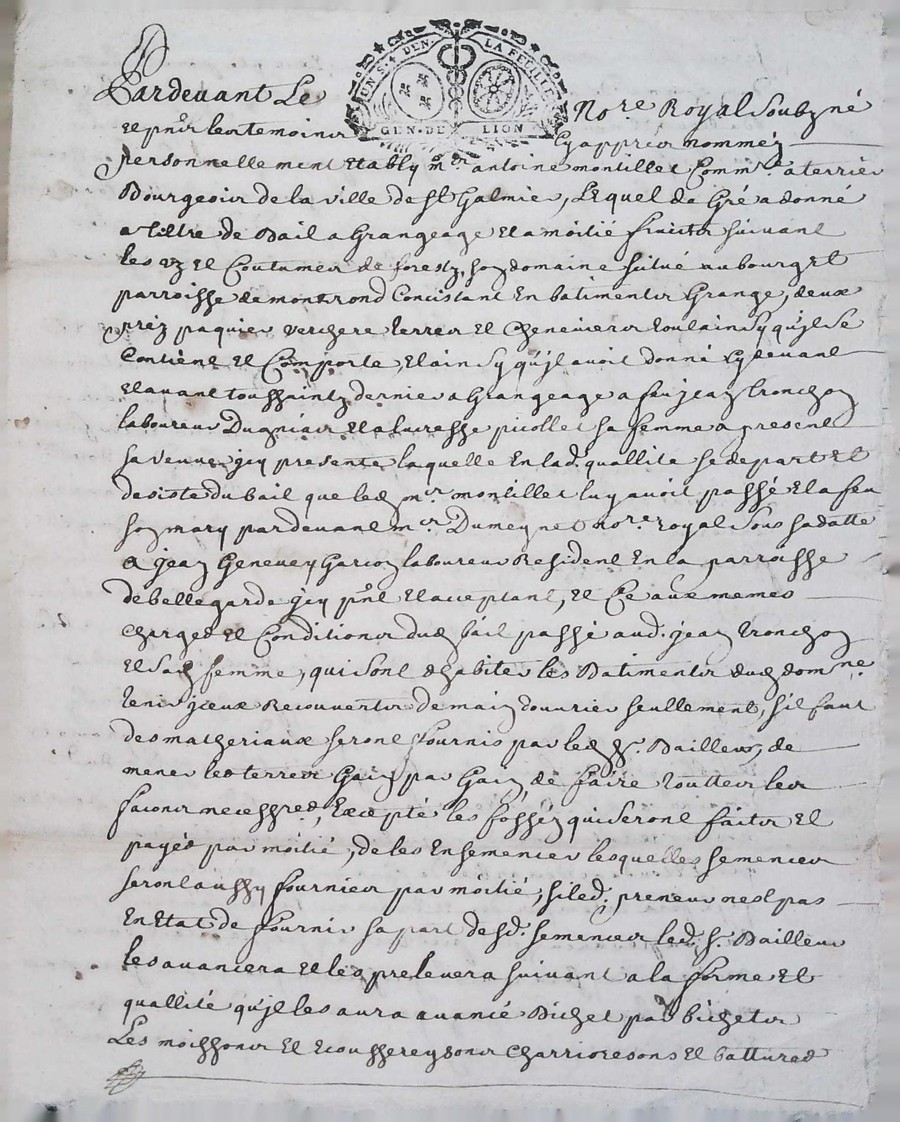 UN S. 4 DEN. LA FEUILLE
GEN. DE LION
Pardevant Le No.re Royal Soubzné
et pnr les temoins Cy appres nommés
personnellement Etably mr. antoine montillet Commre a terrier
Bourgeois de la ville de St Galmier, Lequel da Gré a donné
a tiltre de Bail a Grangeage Et a moitié fruicts suivant
les uz et Coutumes de forestz, son domaine scitué au bourg et
parroisse de montrond Concistant En batiments Grange, deux
préz paquier verchere terres et Cheneviers tout ainsy qu'jl se
Contient et Comporte, Et ainsy qu'jl avoit donné Cy devant
Et avant toussaintz dernier a Grangeage a feu jean tronchon
laboureur Dugniair Et a lucresse picollet sa femme a present
sa veuve jcy presente, laquelle En lad. quallité se depart Et
desiste du bail que led mr. montillet luy avoit passé Et a feu
son mary pardevant mr. Dumeynet nore. royal sous sa datte
a jean Genevey Garcon laboureur Resident En la parroisse
de bellegarde jcy pnt Et acceptant, Et Ce aux memes
charges et Conditions dud bail passé aud. jean tronchon
Et sad femme, qui sont dhabiter les Batiments dud domne.
tenir jceux Recouverts de main douvrier seullement, sil faut
des matheriaux seront fournis par led Sr. Bailleur, de
mener les terres Gain par Gain, de faire touttes les
facons necessres, Excepté les fosséz qui seront faits Et
payés par moitié, de les Ensemencer lesquelles semences
seront aussy fournies par moitié, si led. preneur nest pas
En Etat de fournir sa part desd. semences led. Sr. Bailleur
les avancera Et les prelevera suivant a la forme Et
quallité qu'jl les aura avancé Bichet par bichets
Les moissons Et Ecossereysons charrioresons Et battures